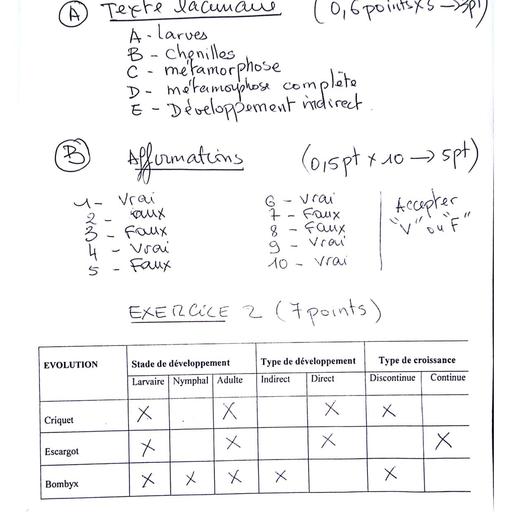 A Texte lacunaire (0,6points x 5 → 3pt)
A - larves
B - chenilles
C - métamorphose
D - métamorphose complète
E - Développement indirect.
B Affirmations (0,5pt x 10 → 5pt)
1- Vrai 6 - Vrai
2 - Faux 7 - Faux
3 - Faux 8 - Faux
4 - Vrai 9 - Vrai
5 - Faux 10 - Vrai
Accepter
"V" ou "F"
EXERCICE 2 (7points)
EVOLUTION Stade de développement Type de développement Type de croissance
Larvaire Nymphal Adulte Indirect Direct Discontinue Continue
Criquet X X X X
Escargot X X X X
Bombyx X X X X X